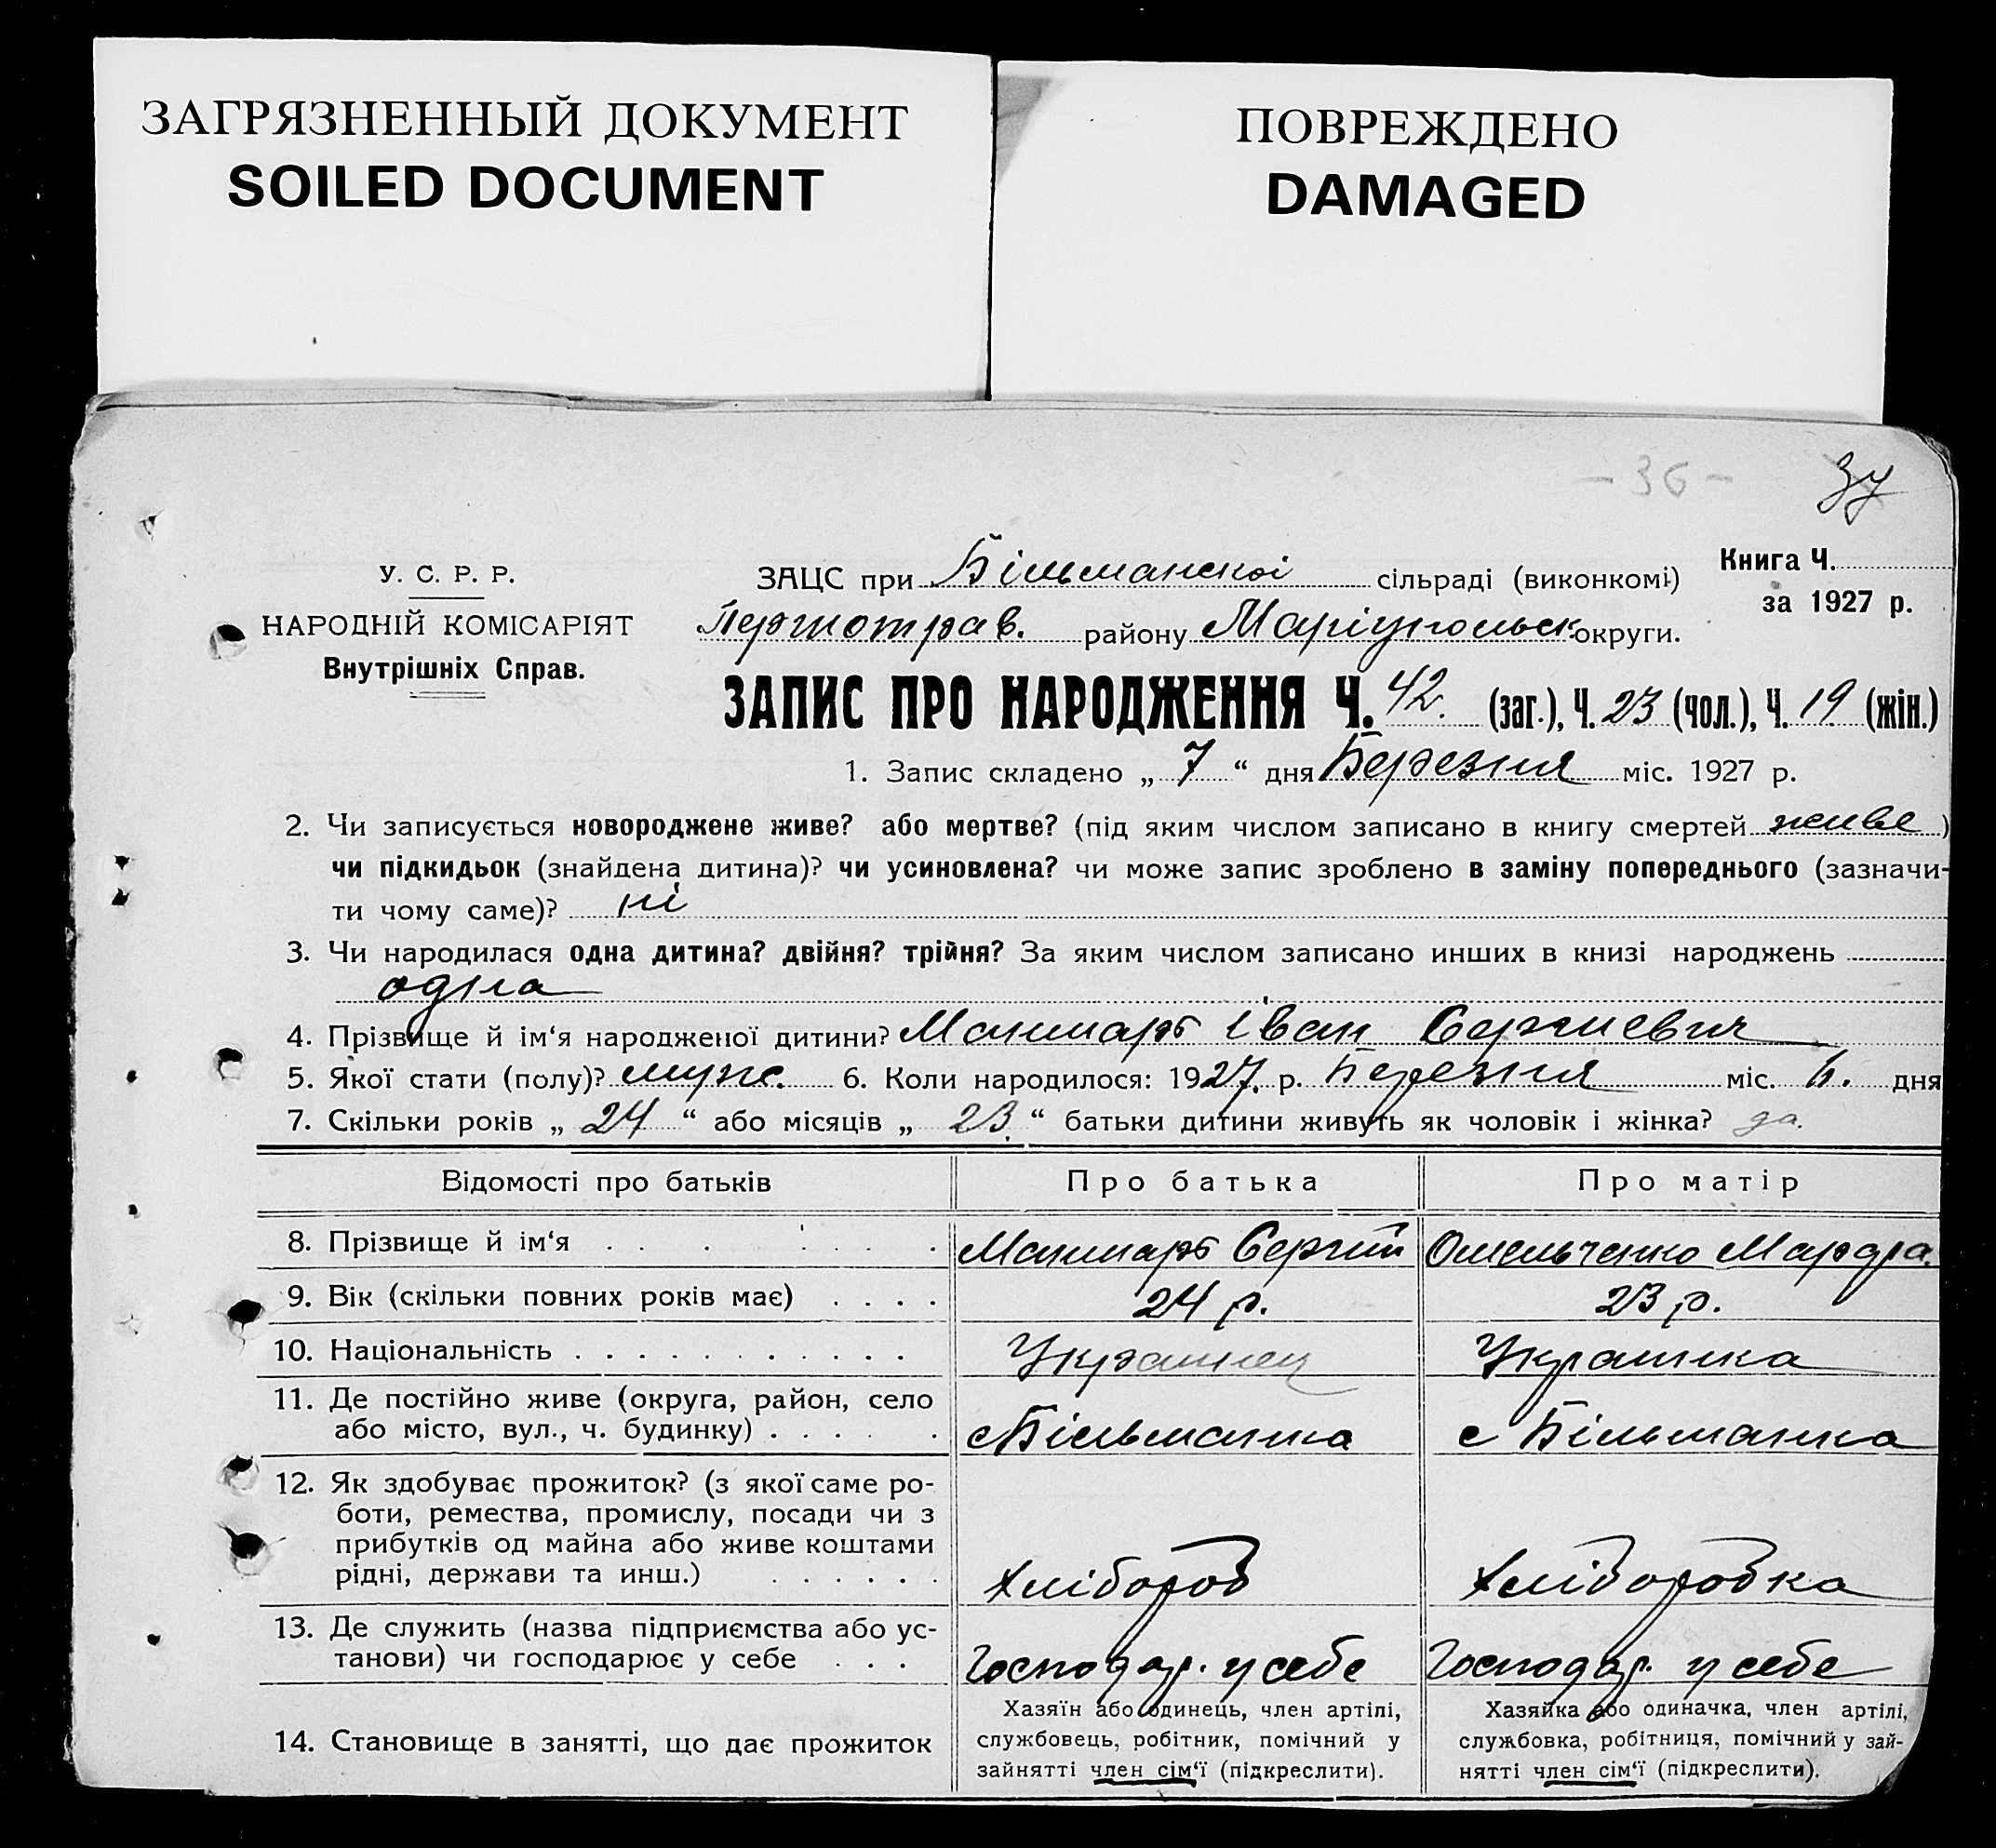 ЗАГРЯЗНЕННЫЙ ДОКУМЕНТ
SOILED DOCUMENT
ПОВРЕЖДЕНО
DAMAGED
- 36 -
37
У. С. Р. Р.
НАРОДНІЙ КОМІСАРІЯТ
Внутрішніх Справ.
ЗАЦС при Більманскої сільраді (виконкомі)
Першотрав. району Маріупольск. округи.
Книга Ч.
за 1927 р.
ЗАПИС ПРО НАРОДЖЕННЯ Ч. 42. (заг.), Ч. 23 (чол.), Ч. 19 (жін.)
1. Запис складено „ 7 “ дня Березня міс. 1927 р.
2. Чи записується новороджене живе? або мертве? (під яким числом записано в книгу смертей живе )
чи підкидьок (знайдена дитина)? чи усиновлена? чи може запис зроблено в заміну попереднього (зазначи-
ти чому саме)? ні
3. Чи народилася одна дитина? двійня? трійня? За яким числом записано инших в книзі народжень
одна
4. Прізвище й ім‘я народженої дитини? Іван
5. Якої стати (полу)? муж. 6. Коли народилося: 1927. р. Березня міс. 6. дня
7. Скільки років „ 24 “ або місяців „ 23. “ батьки дитини живуть як чоловік і жінка? да.
Відомості про батьків Про батька Про матір
8. Прізвище й ім‘я . . . . . . . Сергій Омельченко
9. Вік (скільки повних років має) . . . . 24 р. 23 р.
10. Національність . . . . . . . . . . . Украинец Украинка
11. Де постійно живе (округа, район, село
або місто, вул., ч. будинку) . . . . . с Більманка с Більманка
12. Як здобуває прожиток? (з якої саме ро-
боти, ремества, промислу, посади чи з
прибутків од майна або живе коштами
рідні, держави та инш.) . . . . . . Хлібороб Хліборобка
13. Де служить (назва підприємства або ус-
танови) чи господарює у себе . . . Господар. у себе Господар. у себе
14. Становище в занятті, що дає прожиток
Хазяїн або одинець, член артілі,
службовець, робітник, помічний у
зайнятті член сім‘ї (підкреслити).
Хазяйка або одиначка, член артілі,
службовка, робітниця, помічний у зай-
нятті член сім‘ї (підкреслити).